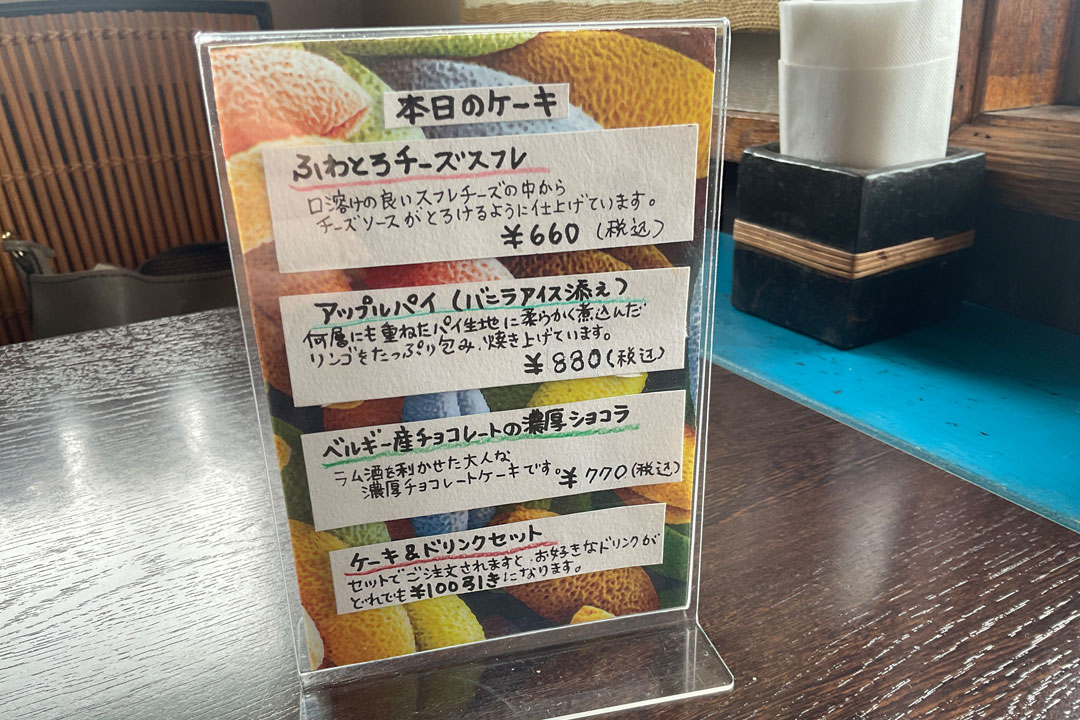 本日のケーキ
ふわとろチーズスフレ
口溶けの良いスフレチーズの中から
チーズソースがとろけるように仕上げています。
¥660（税込）
アップルパイ（バニラアイス添え）
何層にも重ねたパイ生地に柔らかく煮込んだ
リンゴをたっぷり包み、焼き上げています。
¥880（税込）
ベルギー産チョコレートの濃厚ショコラ
ラム酒を利かせた大人な
濃厚チョコレートケーキです。¥770（税込）
ケーキ&ドリンクセット
セットでご注文されますと、お好きなドリンクが
どれでも¥100引きになります。